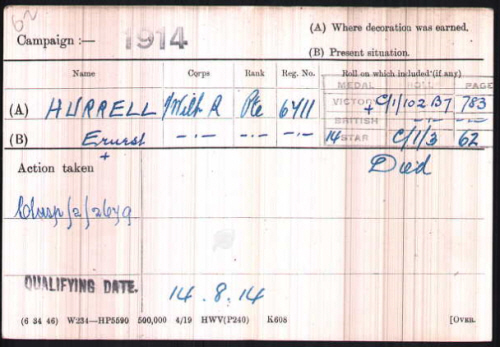 62
Campaign :— 1914
(A) Where decoration was earned.
(B) Present situation.
Name Corps Rank Reg. No. Roll on which included (if any)
MEDAL ROLL PAGE
(A) HURRELL 1/Wilt R Pte 6711 VICTORY + C/1/102 B7 783
BRITISH -·- -·-
(B) Ernest -·- -·- -·- 14 STAR C/1/3 62
+
Action taken Died
/2/2679
QUALIFYING DATE. 14.8.14
(6 34 46) W234—HP5590 500,000 4/19 HWV(P240) K608 [OVER.